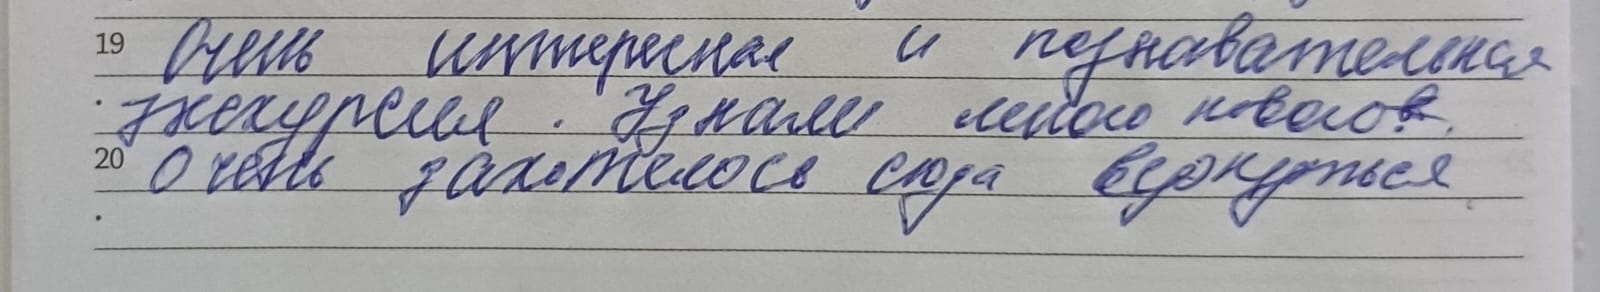 19 Очень интересная и познавательная
. экскурсия. Узнали много нового.
20 Очень захотелось сюда вернуться.
.